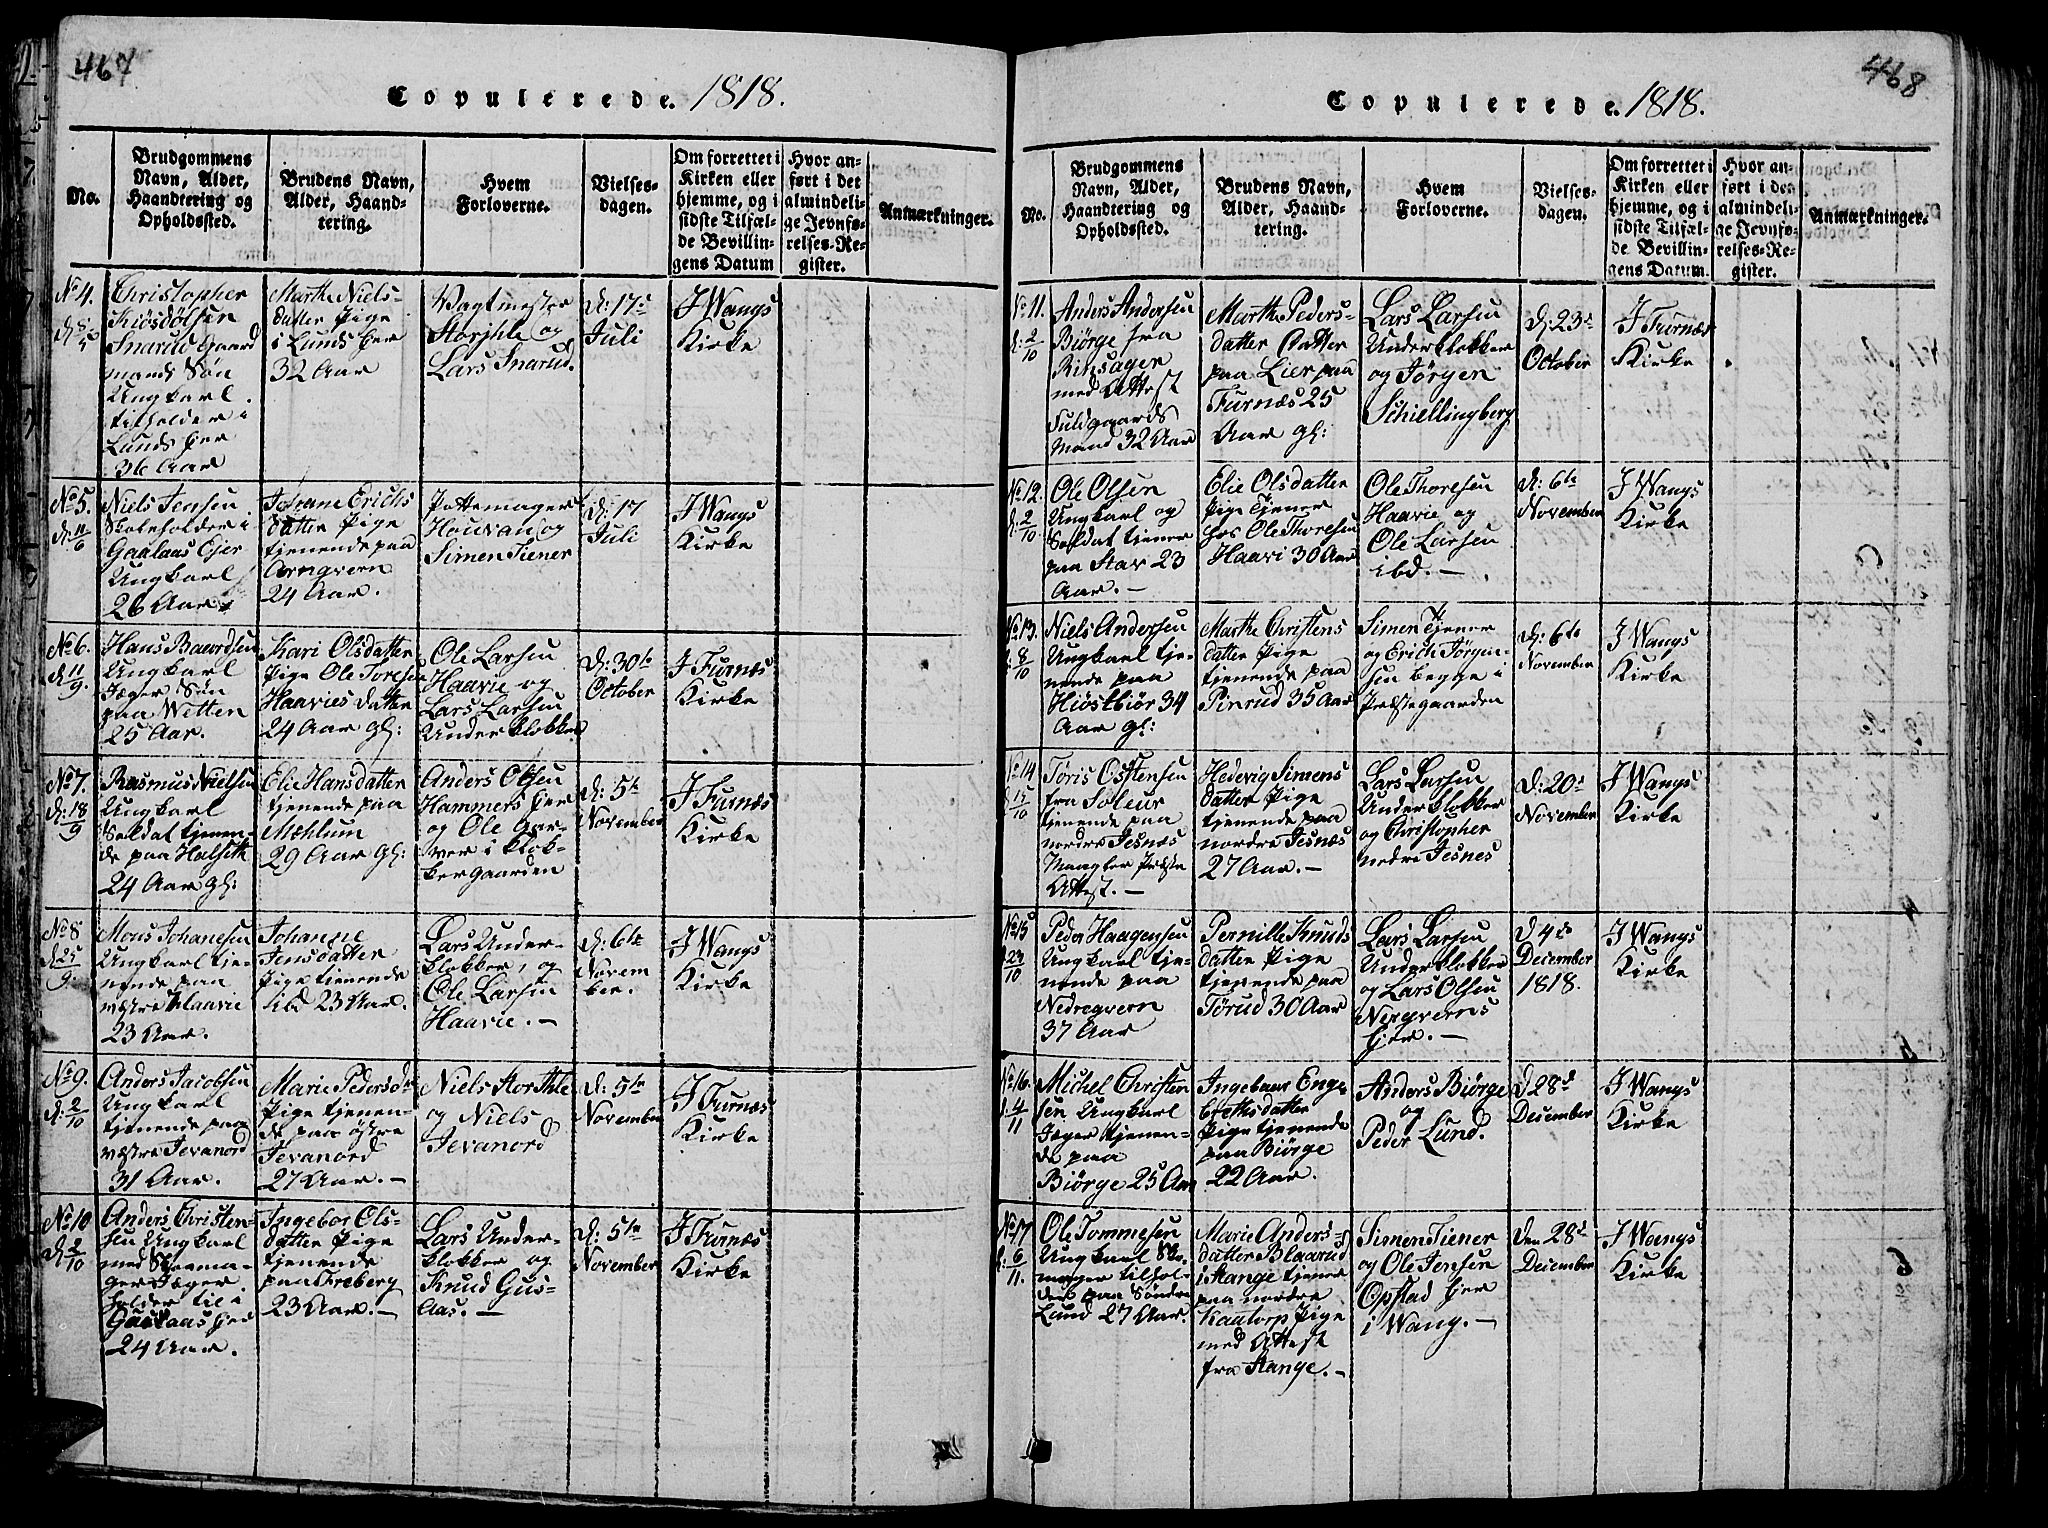 467
Copulerede. 1818.
No.
Brudgommens Navn, Alder, Haandtering og Opholdssted.
Brudens Navn, Alder, Haandtering.
Hvem Forloverne.
Vielsesdagen.
Om forrettet i Kirken eller hjemme, og i sidste Tilfælde Bevillingens Datum
Hvor anført i det almindelige Jevnførelses-Register.
Anmærkninger.
No 4.
Christopher
Kiösdölsen
Snarud Gaard
mands Søn
Ungkarl
tilholder i
Lunds Eier
36 Aar
Marthe Niels-
datter Pige
i Lunds Eier
32 Aar
Vagtmester
Storhle og
Lars Snarud.
d: 17de
Juli
I Wangs
Kirke
No 5.
d: 11/6
Niels Jensen
Skoleholder i
Gaalaas Ejer
Ungkarl
26 Aar
Johane Erichs
datter Pige
tjenende paa
Arngvern
24 Aar.
Pottemager
Houvan og
Simen Tiener
d: 17
Juli
I Wangs
Kirke
No 6.
d 11/9.
Hans Baardsen
Ungkarl
Jæger Søn
paa Wetten
25 Aar.
Kari Olsdatter
Pige Ole Toresen
Haavies datter
24 Aar gl:
Ole Larsen
Haavie og
Lars Larsen
Underklokker
d: 30te
October
I Furnæs
Kirke
No 7.
d: 18/9
Rasmus Nielsen
Ungkarl
Soldat tjenen-
de paa Halseth
24 Aar gl:
Elie Hansdatter
tjenende paa
Mæhlum
29 Aar gl:
Anders Olsen
Hammers Eier
og Ole Aar-
ver i Klok-
kergaarden
d: 5te
November
I Furnæs
Kirke
No 8
d 25/9
Mons Johanesen
Ungkarl tje-
nende paa
vestre Haavie
23 Aar.
Johanne
Jensdatter
Pige tienende
ibd 23 Aar.
Lars Under-
klokker, og
Ole Larsen
Haavie. —
d: 6te
Novem
ber.
I Wangs
Kirke
No 9.
d: 2/10
Anders Jacobsen
Ungkarl
tjenende paa
vestre Jevanord
31 Aar.
Marie Pedersd.
Pige tjenen-
de paa østre
Jevanord
27 Aar. —
Niels Storthle
og Niels
Jevanord
d: 5te
November
I Furnæs
Kirke
No 10
d 2/10
Anders Christen-
sen Ungkarl
med Skoma-
ger Jæger
holder til i
Gaalaas Eier
24 Aar.
Ingebor Ols-
datter Pige
tjenende
paa Freberg
23 Aar. —
Lars Under-
klokker og
Knud Gus-
aas. —
d: 5te
November
I Furnæs
Kirke
468
Copulerede. 1818.
No.
Brudgommens Navn, Alder, Haandtering og Opholdssted.
Brudens Navn, Alder, Haandtering.
Hvem Forloverne.
Vielsesdagen.
Om forrettet i Kirken eller hjemme, og i sidste Tilfælde Bevillingens Datum.
Hvor anført i det almindelige Jevnførelses-Register.
Anmærkninger.
No 11.
d: 2/10
Anders Andersen
Biørge fra
Ringsager
med Attest
Fuldgaards
Mand 32 Aar
Marthe Peders-
datter Datter
paa Lier paa
Furnæs 25
Aar gl:
Lars Larsen
Underklokker
og Jörgen
Schiellingberg
d: 23de
October
I Furnæs
Kirke
No 12.
d: 2/10
Ole Olsen
Ungkarl og
Soldat tjener
paa Stav 23
Aar. —
Elie Olsdatter
Pige tjener
hos Ole Thoresen
Haavi 30 Aar
Ole Thoresen
Haavie og
Ole Larsen
ibd. —
d: 6te
November
I Wangs
Kirke
No 13.
8/10
Niels Andersen
Ungkarl tje-
nende paa
Hiøstbiør 34
Aar gl:
Marthe Christens
datter Pige
tjenende paa
Pinrud 35 Aar
Simen Tjener
og Erich Jørgen-
sen begge i
Præstegaarden
d: 6te
November
I Wangs
Kirke
No 14
15/10
Töris Oststensen
fra Soleur
tjenende paa
nordre Jesnæs
Mangler Præste
Attest. —
Hedevig Simens
datter Pige
tjenende paa
nordre Jesnæs
27 Aar. —
Lars Larsen
Underklokker
og Christopher
nedre Jesnes
d: 20de
November
I Wangs
Kirke
No 15
23/10
Peder Haagensen
Ungkarl tje-
nende paa
Nedregvern
37 Aar
Pernille Knuds
datter Pige
tjenende paa
Törud 30 Aar
Lars Larsen
Underklokker
og Lars Olsen
Nergverns
Eier. —
d 4de
December
1818.
I Wangs
Kirke
No 16.
4/11
Michel Christen
sen Ungkarl
Jæger tjenen-
de paa
Biørge 25 Aar
Ingebaar Enge
brethsdatter
Pige tjenende
paa Biørge
22 Aar.
Anders Biørge
og
Peder Lund.
d 28de
December
I Wangs
Kirke
No 17
6/11.
Ole Tommesen
Ungkarl Sko-
mager tilhol-
der paa Søndre
Lund 27 Aar.
Marie Anders-
datter Blaarud
i Stange tjener
paa nordre
Kaatorp Pige
med Attest
fra Stange. —
Simen Tiener
og Ole Jensen
Opstad Eier
i Wang. —
den 28de
December
I Wangs
Kirke